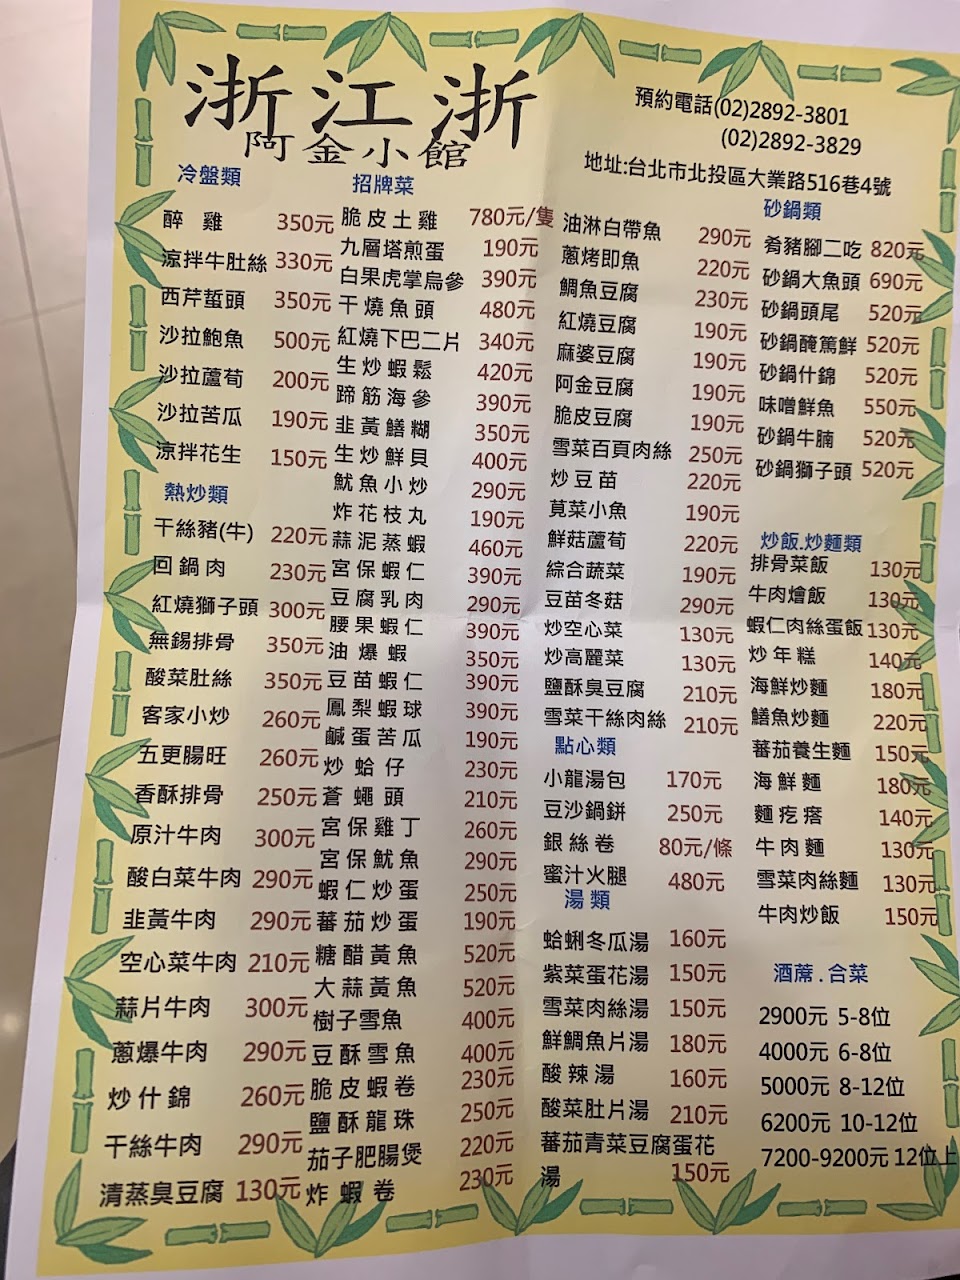 浙江浙
阿金小館
預約電話(02)2892-3801
(02)2892-3829
地址:台北市北投區大業路516巷4號
冷盤類
醉雞 350元
涼拌牛肚絲 330元
西芹蜇頭 350元
沙拉鮑魚 500元
沙拉蘆荀 200元
沙拉苦瓜 190元
涼拌花生 150元
熱炒類
干絲豬(牛) 220元
回鍋肉 230元
紅燒獅子頭 300元
無錫排骨 350元
酸菜肚絲 350元
客家小炒 260元
五更腸旺 260元
香酥排骨 250元
原汁牛肉 300元
酸白菜牛肉 290元
韭黃牛肉 290元
空心菜牛肉 210元
蒜片牛肉 300元
蔥爆牛肉 290元
炒什錦 260元
干絲牛肉 290元
清蒸臭豆腐 130元
招牌菜
脆皮土雞 780元/隻
九層塔煎蛋 190元
白果虎掌烏參 390元
干燒魚頭 480元
紅燒下巴二片 340元
生炒蝦鬆 420元
蹄筋海參 390元
韭黃鱔糊 350元
生炒鮮貝 400元
魷魚小炒 290元
炸花枝丸 190元
蒜泥蒸蝦 460元
宮保蝦仁 390元
豆腐乳肉 290元
腰果蝦仁 390元
油爆蝦 350元
豆苗蝦仁 390元
鳳梨蝦球 390元
鹹蛋苦瓜 190元
炒蛤仔 230元
蒼蠅頭 210元
宮保雞丁 260元
宮保魷魚 290元
蝦仁炒蛋 250元
蕃茄炒蛋 190元
糖醋黃魚 520元
大蒜黃魚 520元
樹子雪魚 400元
豆酥雪魚 400元
脆皮蝦卷 230元
鹽酥龍珠 250元
茄子肥腸煲 220元
炸蝦卷 230元
油淋白帶魚 290元
蔥烤即魚 220元
鯛魚豆腐 230元
紅燒豆腐 190元
麻婆豆腐 190元
阿金豆腐 190元
脆皮豆腐 190元
雪菜百頁肉絲 250元
炒豆苗 220元
莧菜小魚 190元
鮮菇蘆荀 220元
綜合蔬菜 190元
豆苗冬菇 290元
炒空心菜 130元
炒高麗菜 130元
鹽酥臭豆腐 210元
雪菜干絲肉絲 210元
點心類
小龍湯包 170元
豆沙鍋餅 250元
銀絲卷 80元/條
蜜汁火腿 480元
湯類
蛤蜊冬瓜湯 160元
紫菜蛋花湯 150元
雪菜肉絲湯 150元
鮮鯛魚片湯 180元
酸辣湯 160元
酸菜肚片湯 210元
蕃茄青菜豆腐蛋花
湯 150元
砂鍋類
肴豬腳二吃 820元
砂鍋大魚頭 690元
砂鍋頭尾 520元
砂鍋醃篤鮮 520元
砂鍋什錦 520元
味噌鮮魚 550元
砂鍋牛腩 520元
砂鍋獅子頭 520元
炒飯.炒麵類
排骨菜飯 130元
牛肉燴飯 130元
蝦仁肉絲蛋飯 130元
炒年糕 140元
海鮮炒麵 180元
鱔魚炒麵 220元
蕃茄養生麵 150元
海鮮麵 180元
麵疙瘩 140元
牛肉麵 130元
雪菜肉絲麵 130元
牛肉炒飯 150元
酒蓆.合菜
2900元 5-8位
4000元 6-8位
5000元 8-12位
6200元 10-12位
7200-9200元 12位上